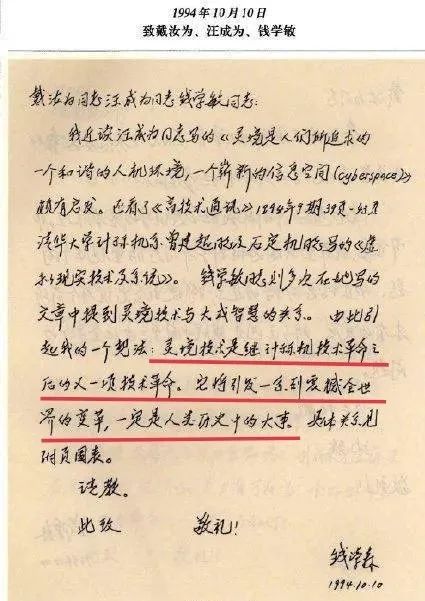 1994年10月10日
致戴汝为、汪成为、钱学敏
戴汝为同志汪成为同志钱学敏同志:
我近读汪成为同志写的《灵境是人们所追求的
一个和谐的人机环境,一个崭新的信息空间(cyberspace)》
颇有启发。也看了《高技术通讯》1994年9期39页-43页
清华大学计算机系曾建超同志及石定机同志写的《虚
拟现实技术及系统》。钱学敏同志则多次在她写的
文章中提到灵境技术与大成智慧的关系。由此引
起我的一个想法:灵境技术是继计算机技术革命之
后的又一项技术革命。它将引发一系列震撼全世
界的变革,一定是人类历史中的大事。具体关系见
附页图表。
请教。
此致 敬礼!
钱学森
1994.10.10